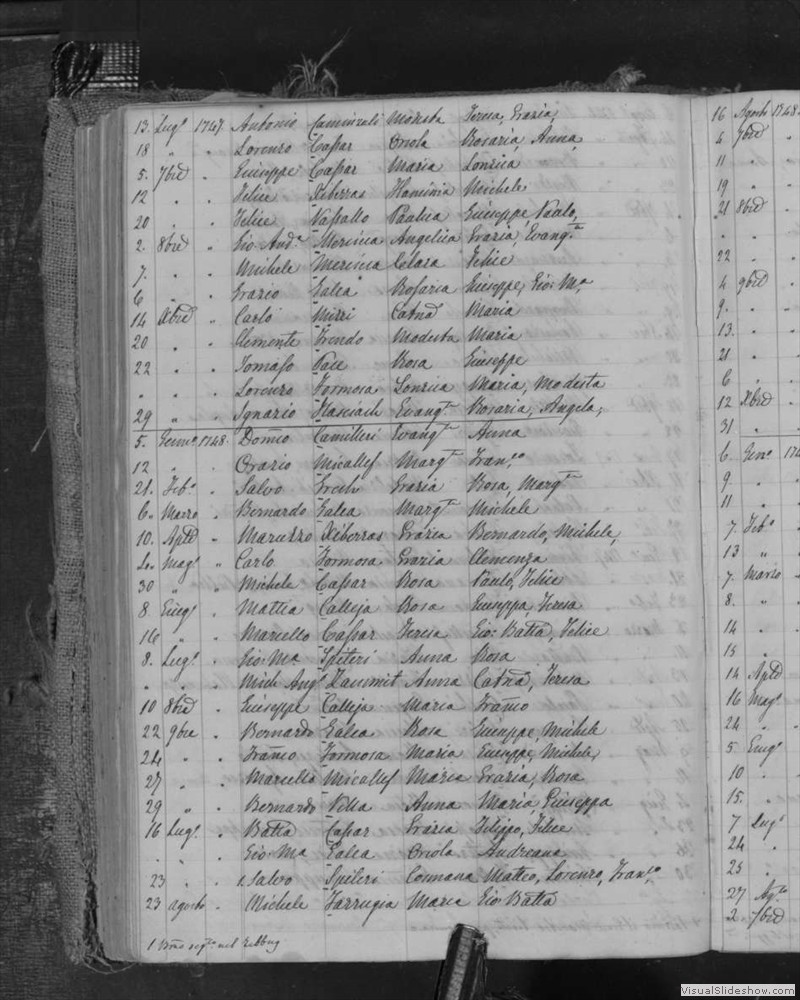 13. Lugo. 1747. Antonio Camenzuli Modesta Teresa, Grazia,
18 " . Lorenzo Cassar Oriola Rosaria, Anna,
5. 7bre " Giuseppe Cassar Maria Lonzica
12 " . Felice Xiberras Flaminia Michele
20 . . Felice Vassallo Paulica Giuseppe, Paulo,
2. 8bre " Gio: Anda. Mercica Angelica Grazia, Evangta
7. " . Michele Mercica Clara Felice
6 " . Grazio Galea Rosaria Giuseppe, Gio: Ma
14 Xbre " Carlo Mizzi Catna Maria
20 . . Clemente Trendo Modesta Maria
22 . . Tomaso Pace Rosa Giuseppe
" . . Lorenzo Formosa Lonzica Maria, Modesta
29 " . Ignazio Haxiach Evangta. Rosaria, Angela,
5. Genno. 1748. Domco Camilleri Evangta Anna
12 " . Orazio Micallef Margta Franco
21. Febo. . Salvo Grech Grazia Rosa, Margta
6. Marzo . Bernardo Galea Margta Michele
10. Aple " Maruzzo Xiberras Grazia Bernardo, Michele,
Mago. " Carlo Formosa Grazia Clemenza
30 " . Michele Cassar Rosa Paulo, Felice
8 Giugo. . Mattia Calleja Rosa Giuseppa, Teresa
16 " . Marcello Cassar Teresa Gio: Batta, Felice
8. Lugo. . Gio: Ma Spiteri Anna Rosa
. . . Mich: Ango Zammit Anna Catna, Teresa
10 8bre . Giuseppe Calleja Maria Franco
22 9bre . Bernardo Galea Rosa Giuseppe, Michele
24 " . Franco Formosa Maria Giuseppe, Michele,
27 . . Marcello Micallef Maria Grazia, Rosa
29 " . Bernardo Villa Anna Maria, Giuseppa
16 Lugo. . Batta Cassar Grazia Filippo, Felice
. . . Gio: Ma Galea Oriola Andreana
23 " . 1. Salvo Spiteri Cosmana Matteo, Lorenzo, Franco.
23 agosto . Michele Farrugia Maria Gio: Batta
16 Agosto 1748.
4 7bre "
11 "
19 "
21 8bre
22 "
4 9bre
9.
13.
21
6
12 Xbre
31
6. Geno.
9
11
7. Febo.
13 "
7. Marzo
8.
14
15
14 Aple
16 Mago.
24
5 Giugo.
10
15.
7 Lugo
24
25
27 Ago.
2. 7bre
VisualSlideshow.com